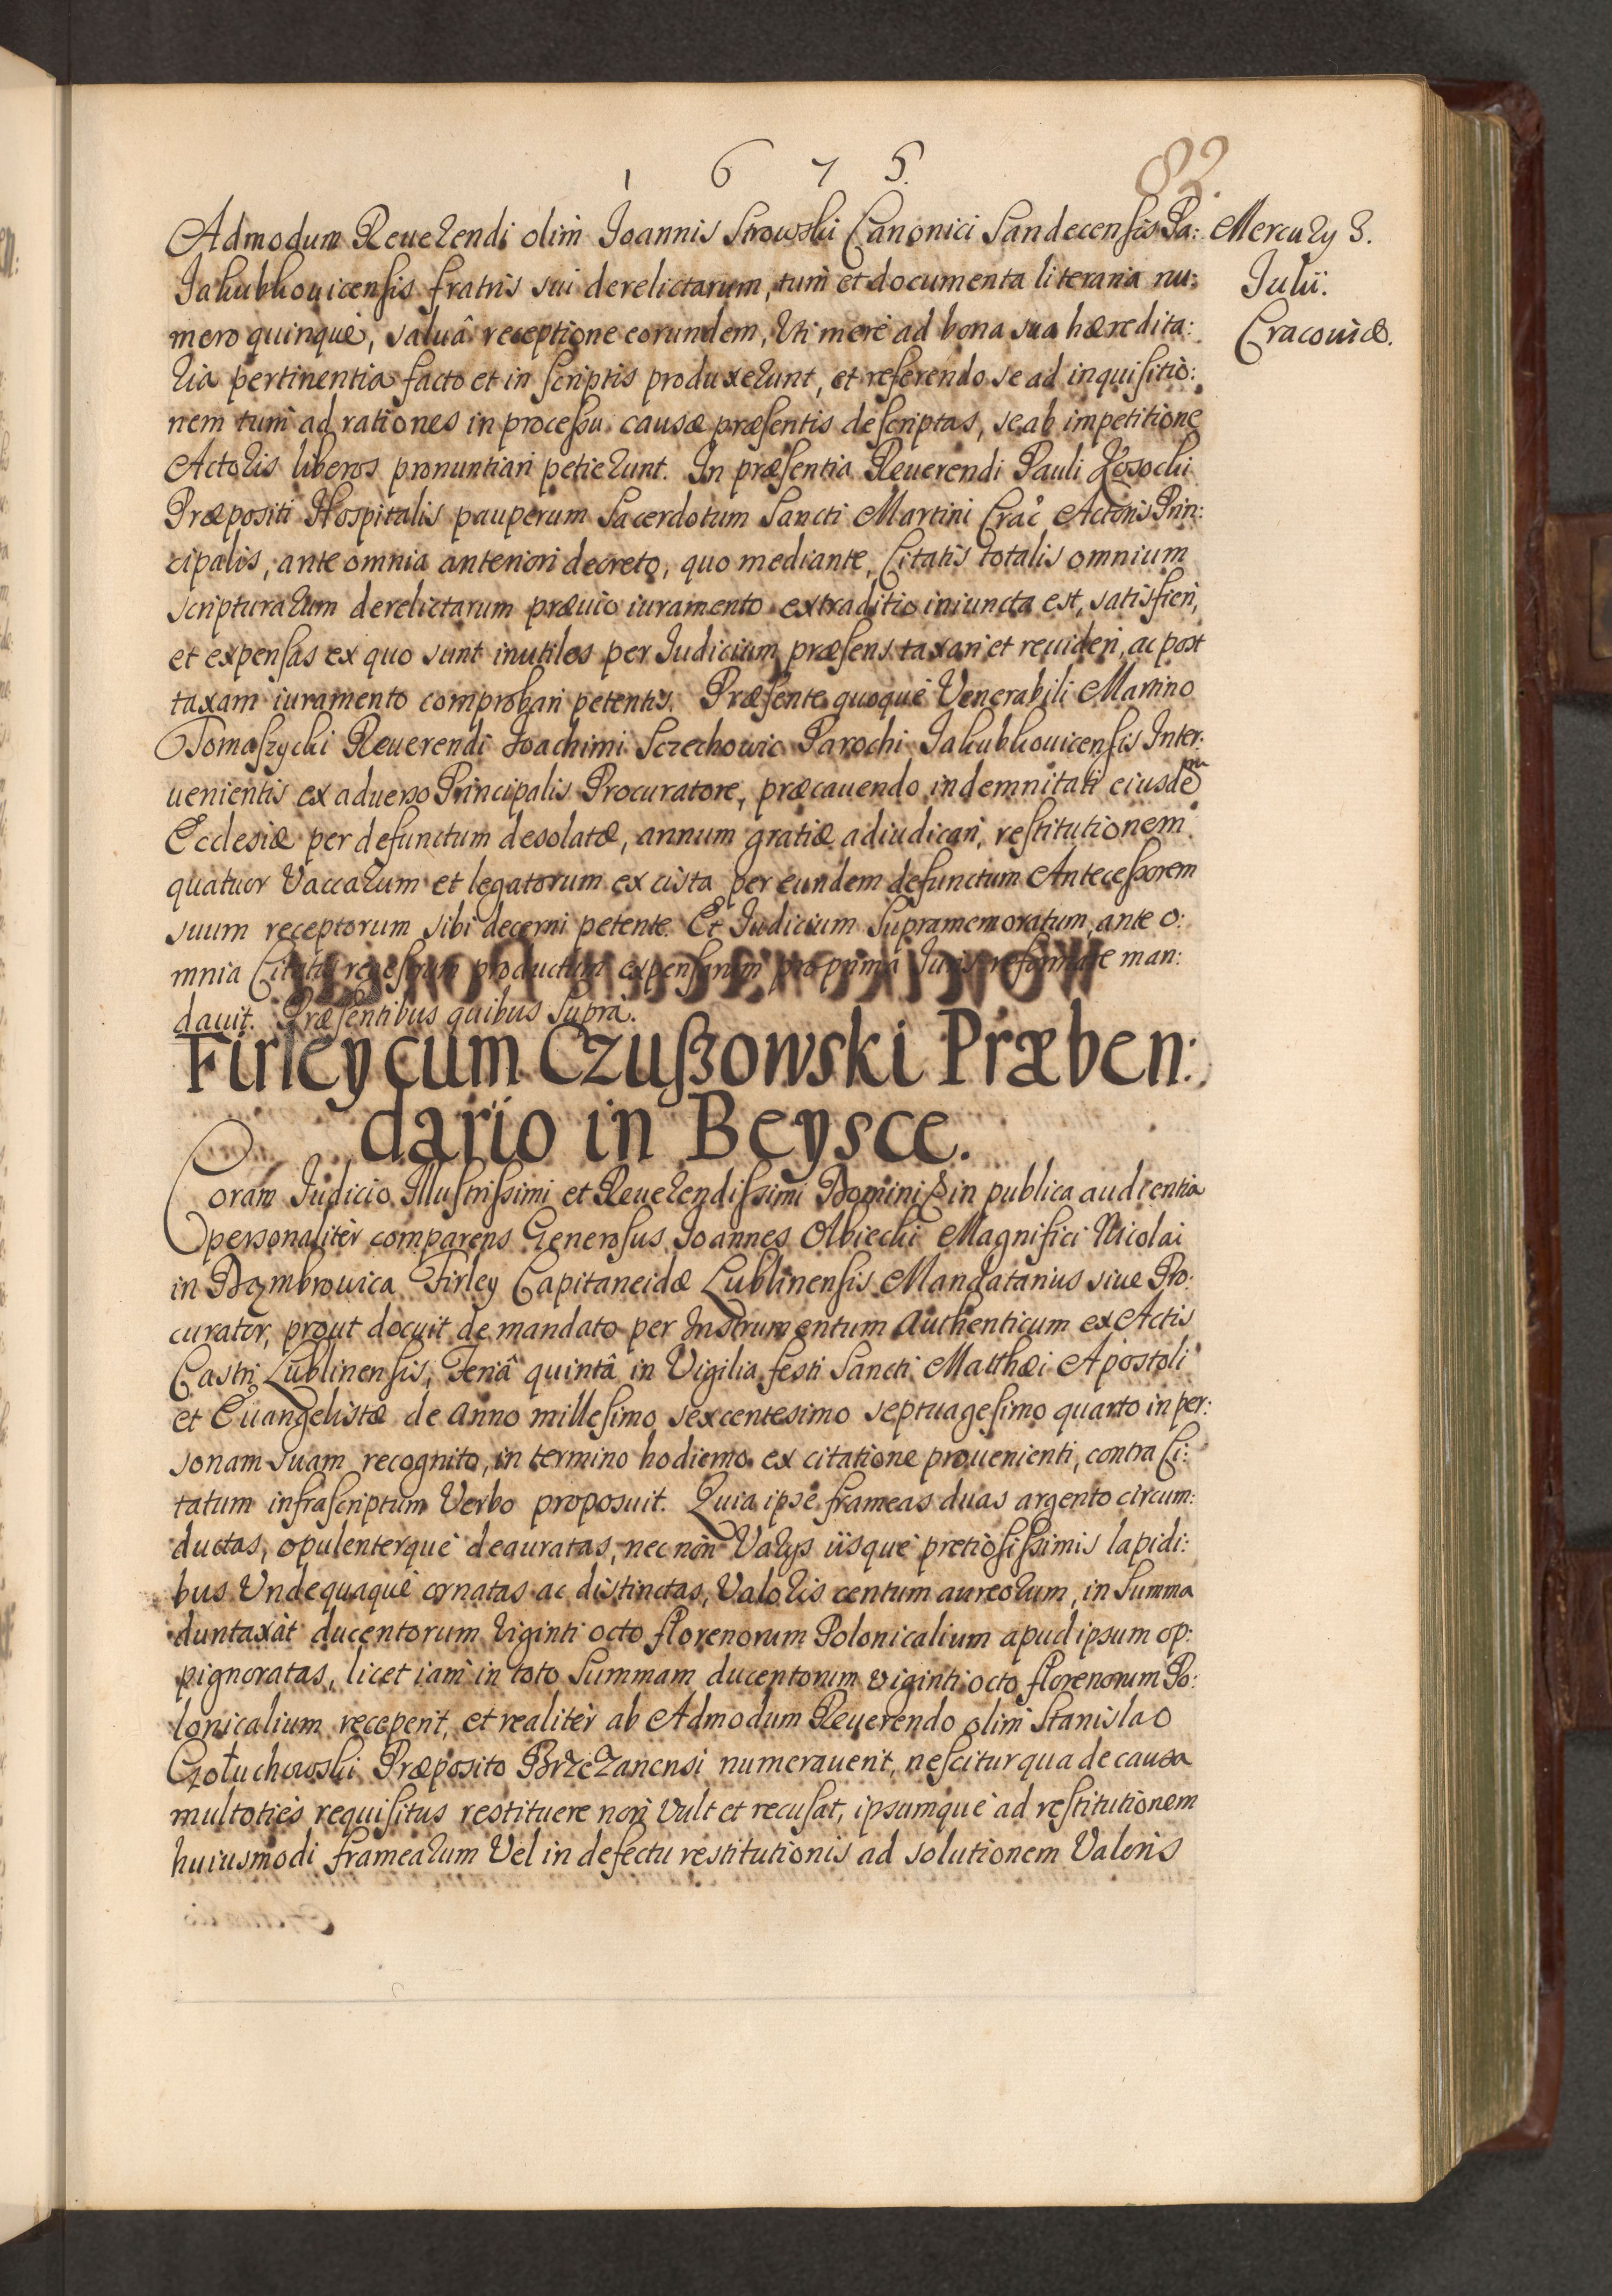 1 6 7 5.
82.
Mercury 3.
Julii.
Cracoviæ.
Admodum Reuerendi olim Joannis Srowski Canonici Sandecensis Pa:
Jakubkouicensis fratris sui derelictarum, tum et documenta literaria nu:
mero quinque, saluâ receptione eorundem, Uti mere ad bona sua hæredita:
ria pertinentia facto et in scriptis produxerunt, et referendo se ad inquisitio:
nem tum ad rationes in processu causæ præsentis descriptas, se ab impetitione
Actoris liberos pronuntiari petierunt. In præsentia Reuerendi Pauli
Præpositi Hospitalis pauperum Sacerdotum Sancti Martini Crac Actoris Prin:
cipalis, ante omnia anteriori decreto, quo mediante, Citatis totalis omnium
scripturarum derelictarum præuio iuramento extraditio iniuncta est, satisfieri,
et expensas ex quo sunt inutiles per Judicium præsens taxari et reuideri, ac post
taxam iuramento comprobari petentis. Præsente quoque Venerabili Martino
Tomaszycki Reuerendi Joachimi Szrechowic Parochi Jakubkouicensis Inter:
uenientis ex aduerso Principalis Procuratore, præcauendo indemnitati eiusdem
Ecclesiæ per defunctum desolatæ, annum gratiæ adiudicari, restitutionem
quatuor Vaccarum et legatorum ex cista per eundem defunctum Antecessorem
suum receptorum sibi decerni petente. Et Judicium Supramemoratum ante o:
mnia Citatis regestrum productum expensarum pro prima Juris reformare man:
dauit. Præsentibus quibus Supra.
Firley cum Czuszowski Præben:
dario in Beysce.
Coram Judicio Illustrissimi et Reuerendissimi Domini in publica audientia
personaliter comparens Generosus Joannes Olbiecki Magnifici Nicolai
in Dąmbrouica Firley Capitaneidæ Lublinensis Mandatarius siue Pro:
curator, prout docuit de mandato per Instrumentum Authenticum ex Actis
Castri Lublinensis, Feriâ quintâ in Vigilia festi Sancti Matthæi Apostoli
et Euangelistæ de Anno millesimo sexcentesimo septuagesimo quarto in per:
sonam suam recognito, in termino hodierno ex citatione prouenienti, contra Ci:
tatum infrascriptum Verbo proposuit. Quia ipse frameas duas argento circum:
ductas, opulenterque deauratas, nec non Varys iisque pretiosissimis lapidi:
bus Undequaque ornatas ac distinctas, Valoris centum aureorum, in Summa
duntaxat ducentorum viginti octo florenorum Polonicalium apud ipsum op:
pignoratas, licet iam in toto Summam ducentorum viginti octo florenorum Po:
lonicalium receperit, et realiter ab Admodum Reuerendo olim Stanislao
Gołuchowski Præposito Brzezanensi numerauerit, nescitur qua de causa
multoties requisitus restituere non Vult et recusat, ipsumque ad restitutionem
huiusmodi framearum Vel in defectu restitutionis ad solutionem Valoris